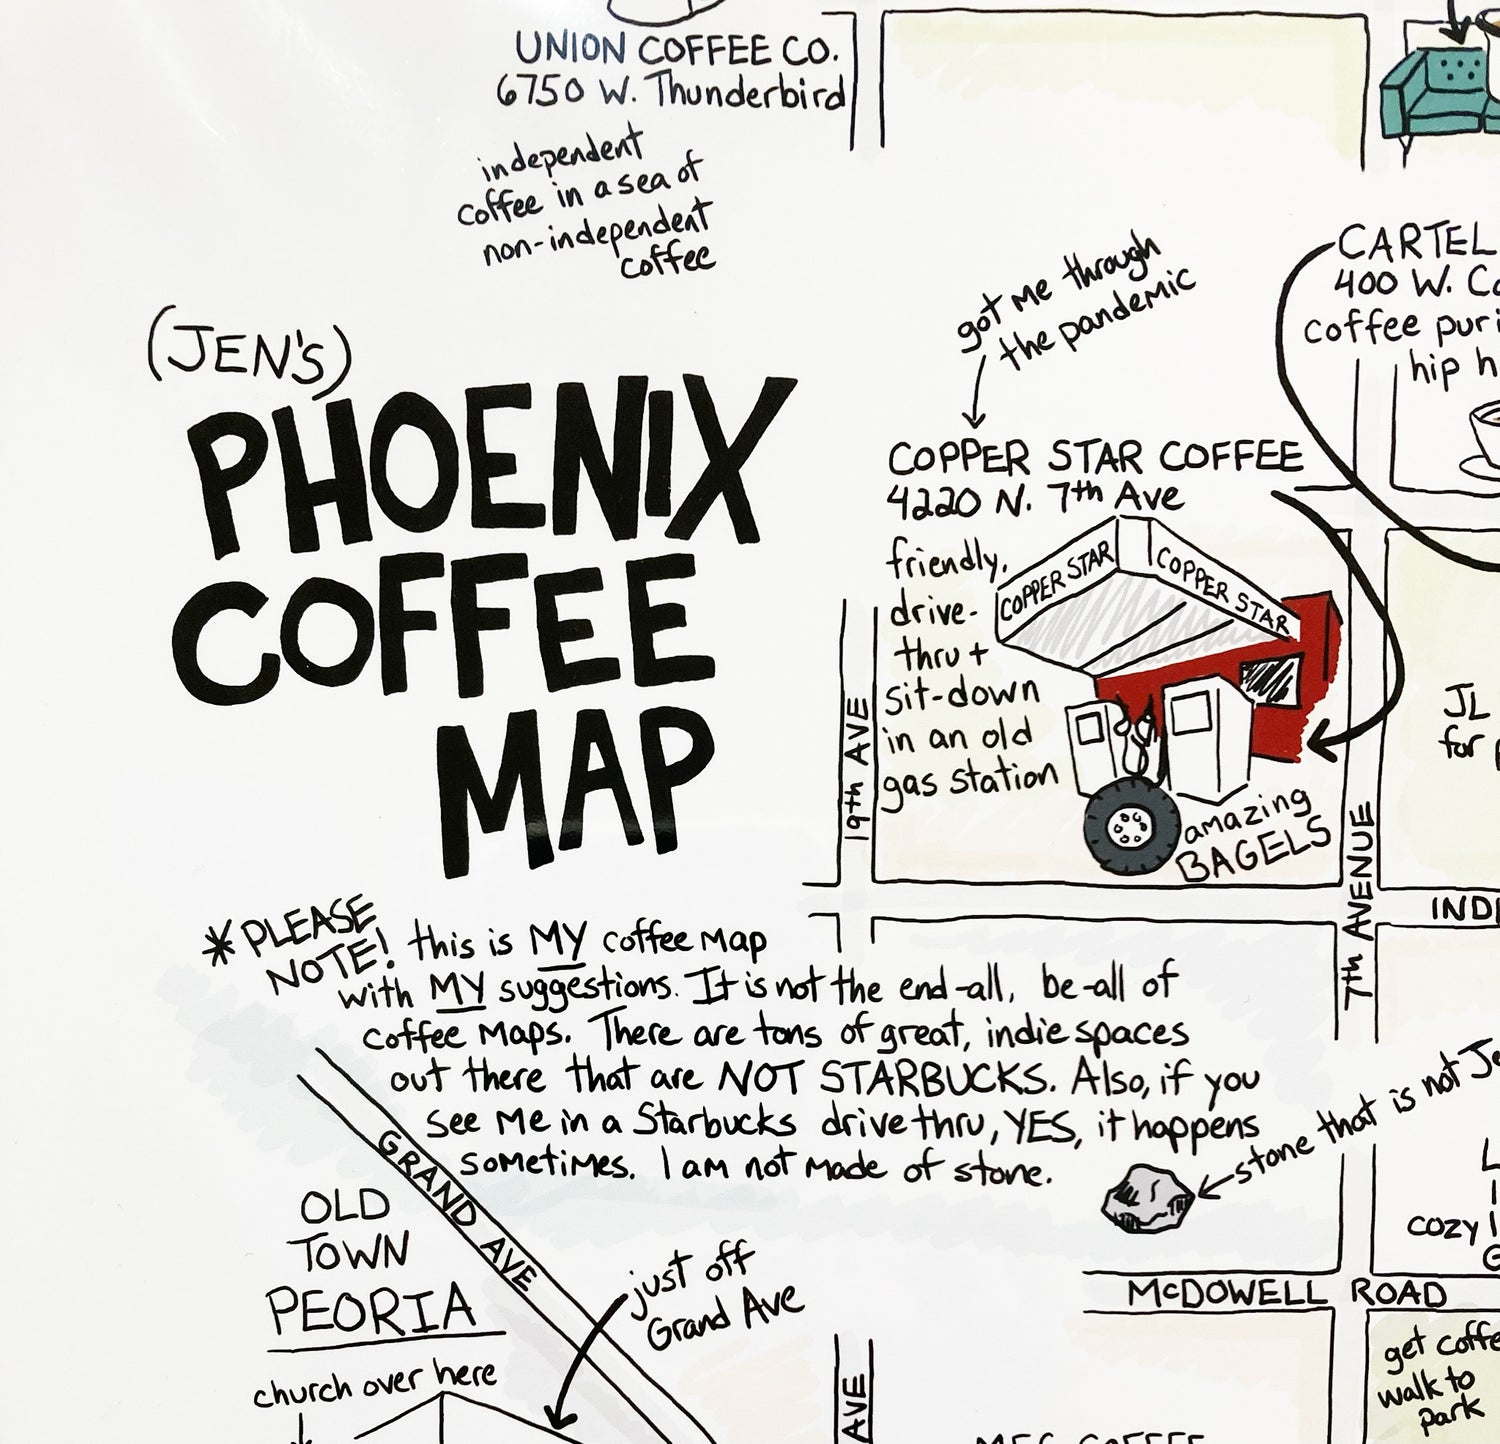 UNION COFFEE CO.
6750 W. Thunderbird
independent
coffee in a sea of
non-independent
coffee
(JEN'S)
PHOENIX
COFFEE
MAP
got me through
the pandemic
CARTEL
400 W.
coffee
hip
COPPER STAR COFFEE
4220 N. 7th Ave
friendly,
drive-
thru +
sit-down
in an old
gas station
COPPER STAR
COPPER STAR
amazing
BAGELS
19th AVE
7th AVENUE
JL
for
* PLEASE
NOTE! this is MY coffee map
with MY suggestions. It is not the end-all, be-all of
coffee maps. There are tons of great, indie spaces
out there that are NOT STARBUCKS. Also, if you
see me in a Starbucks drive thru, YES, it happens
sometimes. I am not made of stone.
stone that is not
cozy
GRAND AVE
OLD
TOWN
PEORIA
just off
Grand Ave
church over here
McDOWELL ROAD
AVE
get coffee
walk to
park
COFFEE